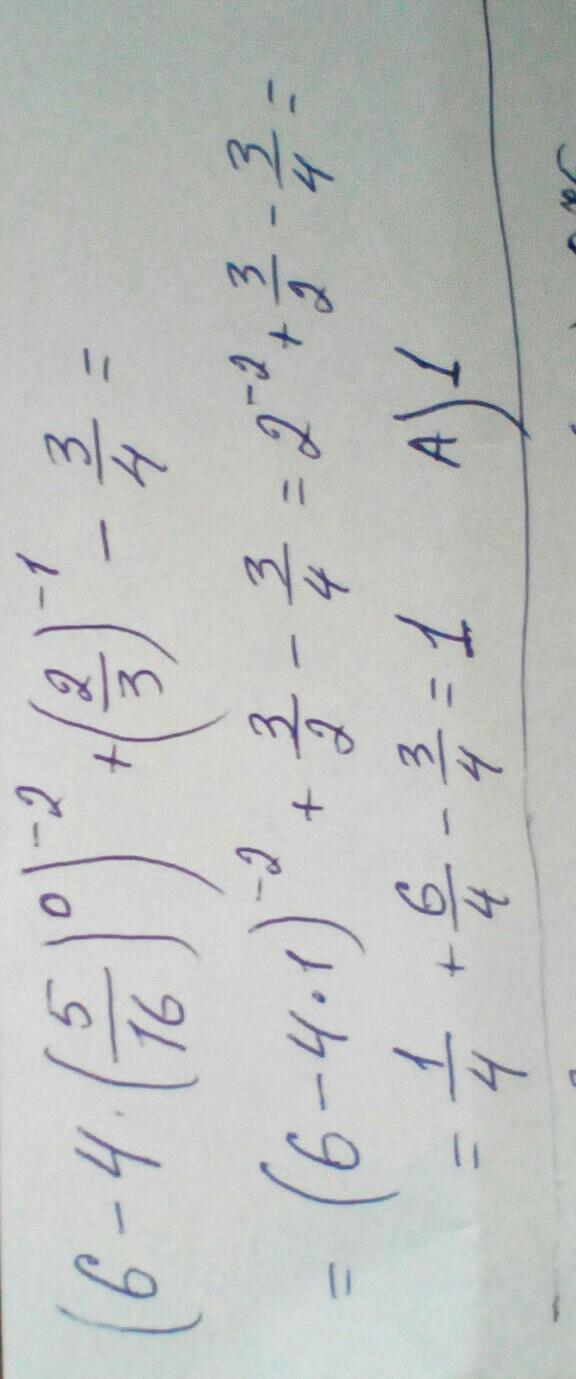 (6 - 4 · (5/16)⁰)⁻² + (2/3)⁻¹ - 3/4 =
= (6 - 4 · 1)⁻² + 3/2 - 3/4 = 2⁻² + 3/2 - 3/4 =
= 1/4 + 6/4 - 3/4 = 1 A) 1